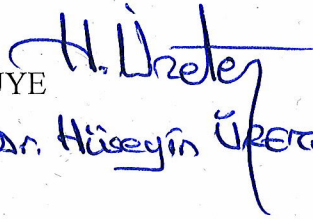 H. Üreten
ÜYE
Dr. Hüseyin ÜRETEN